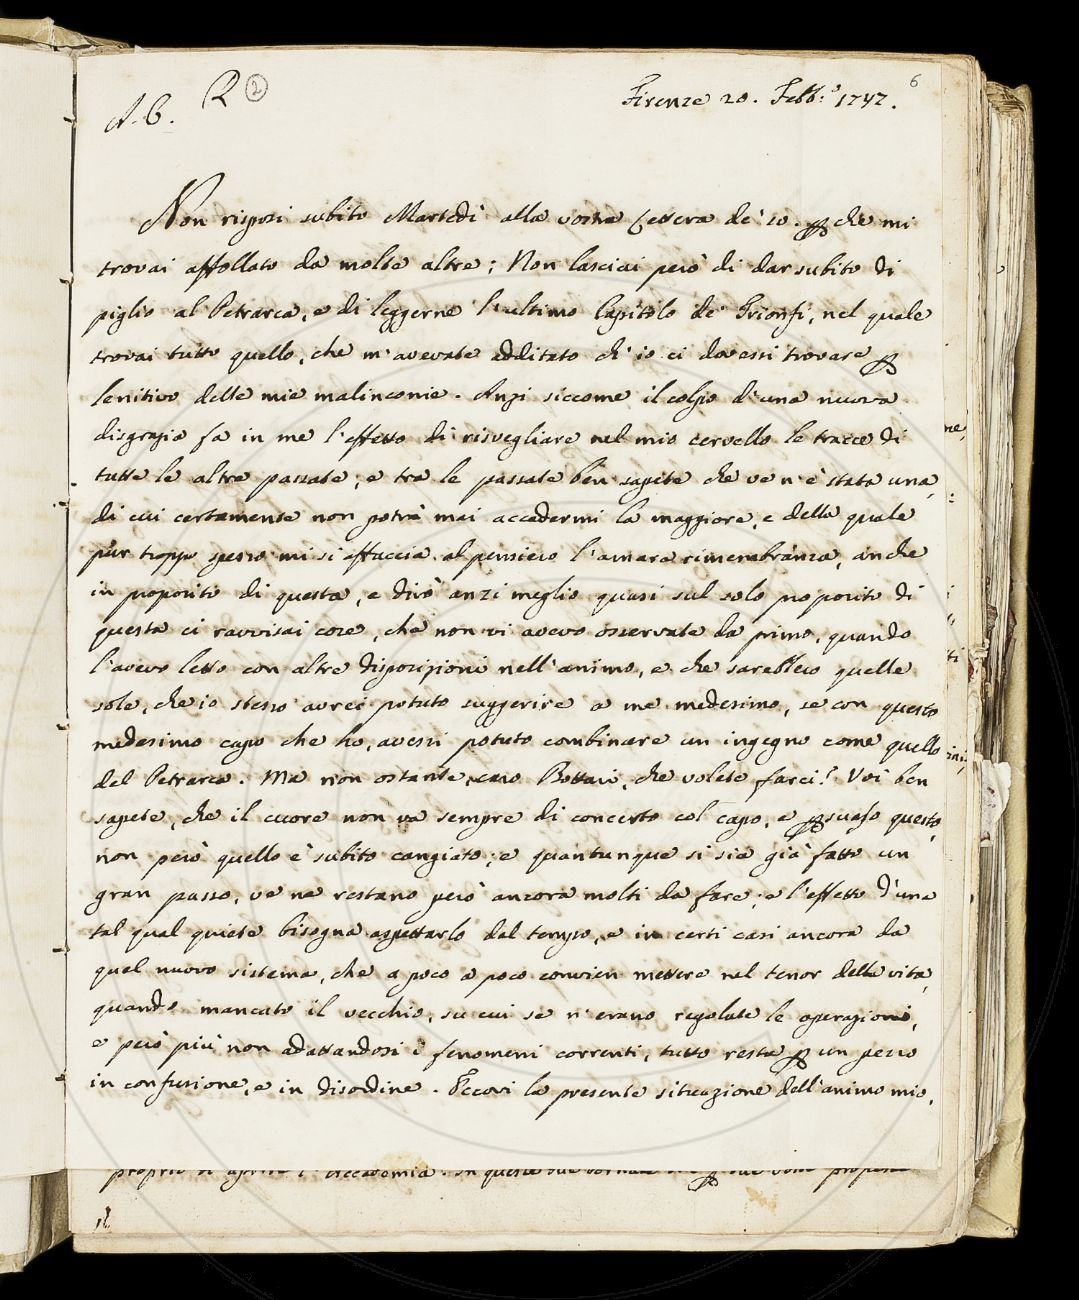 6
A. C. R 2 Firenze 20. Febb.o 1747.
Non risposi subito Martedì alla vostra Lettera de' 10. p che mi
trovai affollato da molte altre; Non lasciai però di dar subito di
piglio al Petrarca, e di leggerne l'ultimo Capitolo de' Trionfi, nel quale
trovai tutto quello, che m'avevate additato ch'io ci dovessi trovare p
lenitivo delle mie malinconie. Anzi siccome il colpo d'una nuova
disgrazia fa in me l'effetto di risvegliare nel mio cervello le tracce di
tutte le altre passate; e tra le passate ben sapete che ve n'è stata una,
di cui certamente non potrà mai accadermi la maggiore, e della quale
pur troppo spesso mi si affaccia al pensiero l'amara rimembranza, anche
in proposito di questa, e dirò anzi meglio quasi sul solo proposito di
questa ci ravvisai cose, che non vi avevo osservate da primo, quando
l'avevo letto con altre disposizioni nell'animo, e che sarebbero quelle
sole, che io stesso avrei potuto suggerire a me medesimo, se con questo
medesimo capo che ho, avessi potuto combinare un ingegno come quello
del Petrarca. Ma non ostante, caro Bottari, che volete farci? Voi ben
sapete, che il cuore non va sempre di concerto col capo, e psuaso questo,
non però quello è subito cangiato; e quantunque si sia già fatto un
gran passo, ve ne restano però ancora molti da fare; e l'effetto d'una
tal qual quiete bisogna aspettarlo dal tempo, e in certi casi ancora da
quel nuovo sistema, che a poco a poco convien mettere nel tenor della vita,
quando mancato il vecchio, su cui se n'erano regolate le operazioni,
e però più non adattandosi i fenomeni correnti, tutto resta p un pezzo
in confusione, e in disordine. Eccovi la presente situazione dell'animo mio.
proprio di aprire l'Accademia. In questa